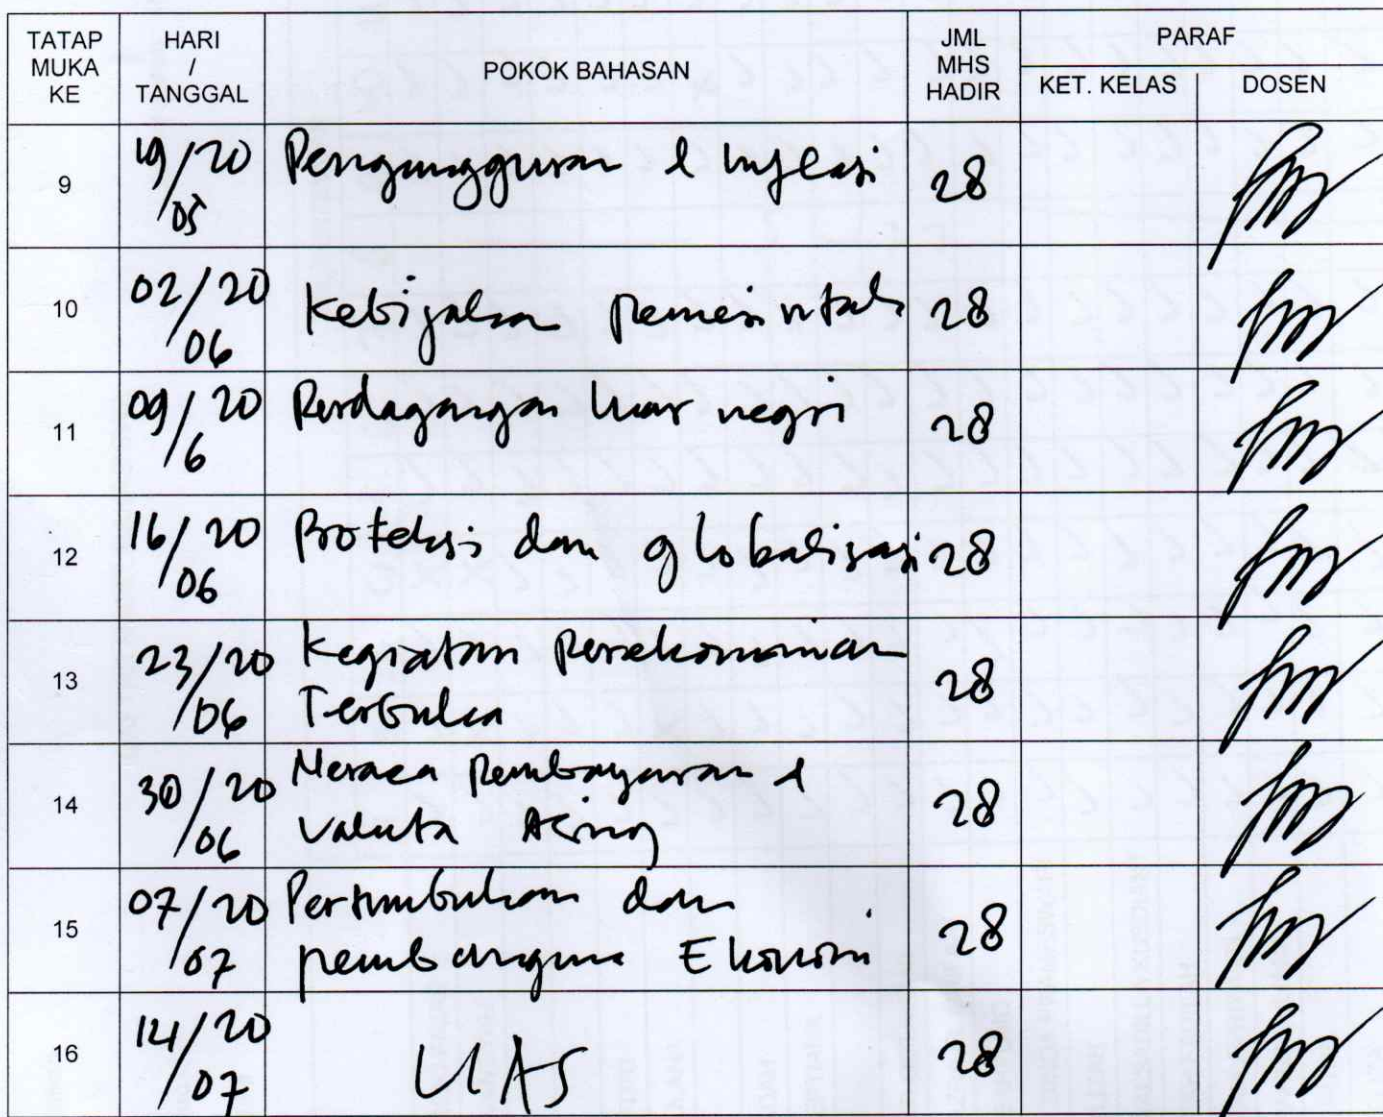 TATAP MUKA KE
HARI / TANGGAL
POKOK BAHASAN
JML MHS HADIR
PARAF
KET. KELAS
DOSEN
9 19/20 05 Pengangguran & Inflasi 28
10 02/20 06 Kebijakan Pemerintah 28
11 09/20 6 Perdagangan luar negri 28
12 16/20 06 Proteksi dan globalisasi 28
13 23/20 06 Kegiatan Perekonomian 28
Terbuka
14 30/20 06 Neraca Pembayaran & 28
Valuta Asing
15 07/20 07 Pertumbuhan dan 28
pembangunan Ekonomi
16 14/20 07 UAS 28